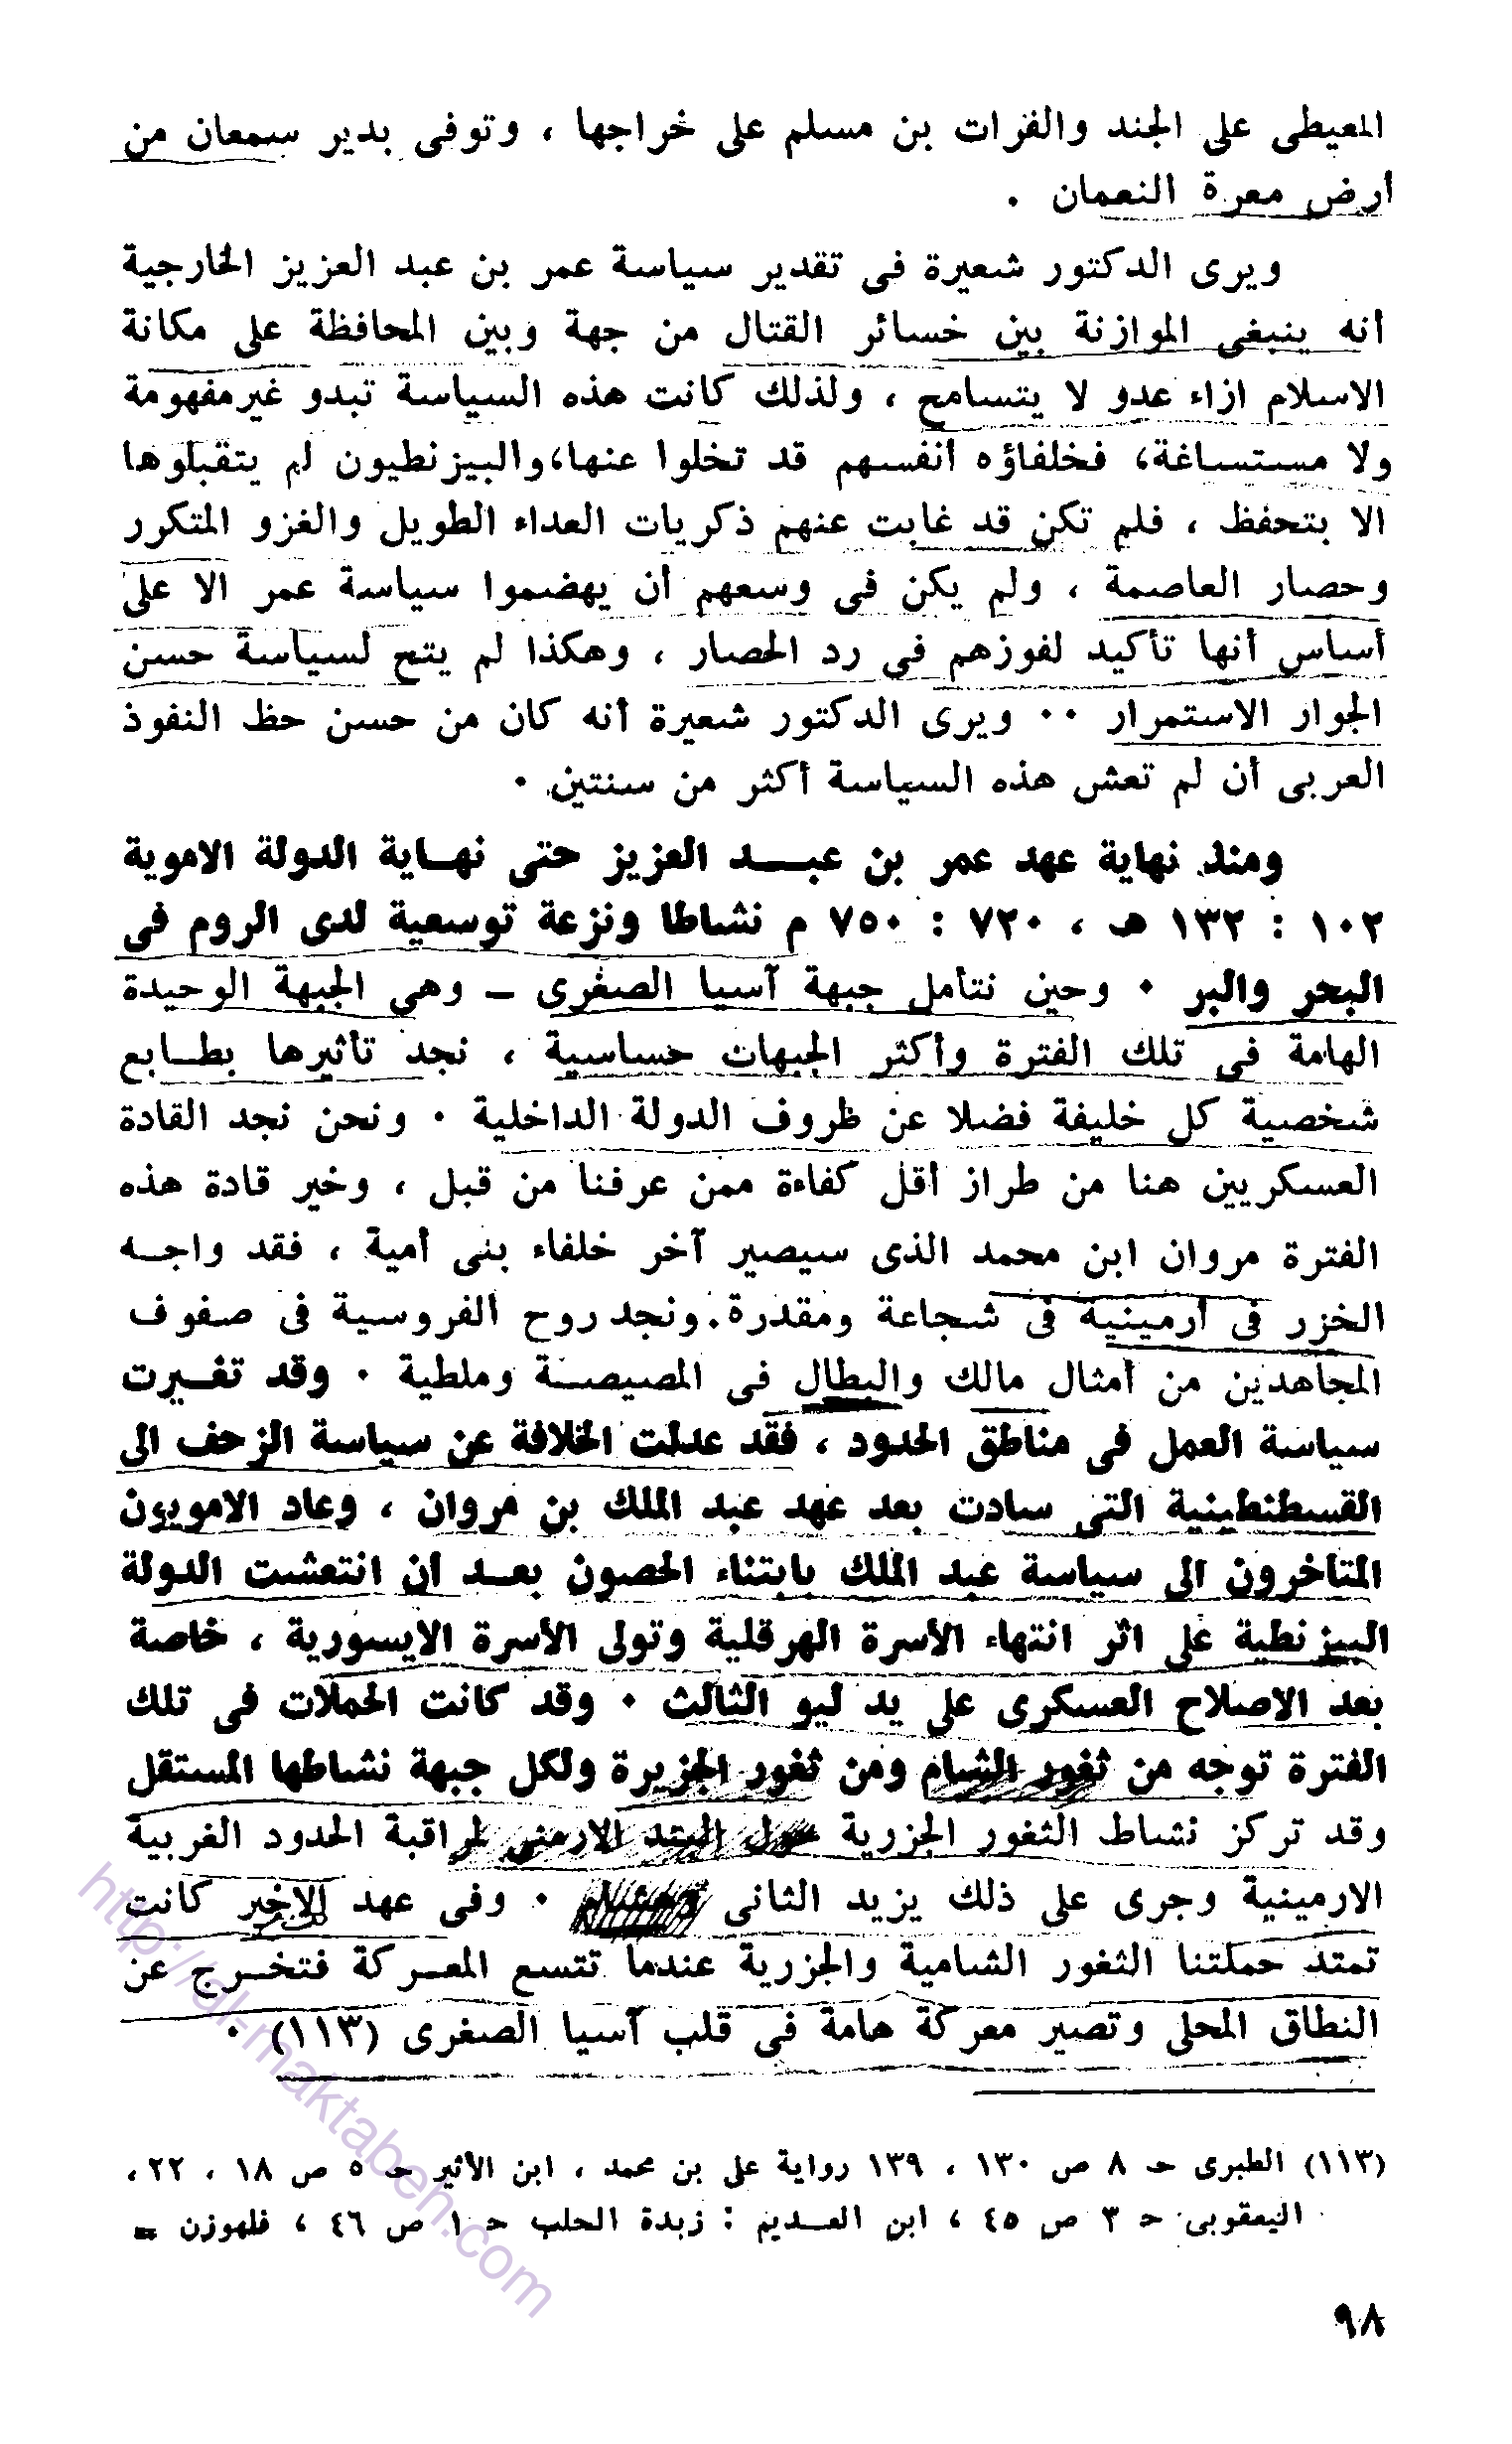 المعيطى على الجند والفرات بن مسلم على خراجها ، وتوفى بدير سمعان من
أرض معرة النعمان .
ويرى الدكتور شعيرة فى تقدير سياسة عمر بن عبد العزيز الخارجية
أنه ينبغى الموازنة بين خسائر القتال من جهة وبين المحافظة على مكانة
الاسلام ازاء عدو لا يتسامح ، ولذلك كانت هذه السياسة تبدو غيرمفهومة
ولا مستساغة، فخلفاؤه أنفسهم قد تخلوا عنها،والبيزنطيون لم يتقبلوها
الا بتحفظ ، فلم تكن قد غابت عنهم ذكريات العداء الطويل والغزو المتكرر
وحصار العاصمة ، ولم يكن فى وسعهم أن يهضموا سياسة عمر الا على
أساس أنها تأكيد لفوزهم فى رد الحصار ، وهكذا لم يتح لسياسة حسن
الجوار الاستمرار ٠٠ ويرى الدكتور شعيرة أنه كان من حسن حظ النفوذ
العربى أن لم تعش هذه السياسة أكثر من سنتين ٠
ومنذ نهاية عهد عمر بن عبــــد العزيز حتى نهـاية الدولة الاموية
١٠٢ : ١٣٢ هـ ، ٧٢٠ : ٧٥٠ م نشاطا ونزعة توسعية لدى الروم فى
البحر والبر ٠ وحين نتأمل جبهة آسيا الصغرى – وهى الجبهة الوحيدة
الهامة فى تلك الفترة وأكثر الجبهات حساسية ، نجد تأثيرها بطـابع
شخصية كل خليفة فضلا عن ظروف الدولة الداخلية ٠ ونحن نجد القادة
العسكريين هنا من طراز أقل كفاءة ممن عرفنا من قبل ، وخير قادة هذه
الفترة مروان ابن محمد الذى سيصير آخر خلفاء بنى أمية ، فقد واجـه
الخزر فى أرمينية فى شجاعة ومقدرة.ونجد روح الفروسية فى صفوف
المجاهدين من أمثال مالك والبطال فى المصيصـة وملطية ٠ وقد تغـيرت
سياسة العمل فى مناطق الحدود ، فقد عدلت الخلافة عن سياسة الزحف الى
القسطنطينية التى سادت بعد عهد عبد الملك بن مروان ، وعاد الامويون
المتأخرون الى سياسة عبد الملك بابتناء الحصون بعـد أن انتعشت الدولة
البيزنطية على اثر انتهاء الأسرة الهرقلية وتولى الأسرة الايسورية ، خاصة
بعد الاصلاح العسكرى على يد ليو الثالث ٠ وقد كانت الحملات فى تلك
الفترة توجه من ثغور الشام ومن ثغور الجزيرة ولكل جبهة نشاطها المستقل
وقد تركز نشاط الثغور الجزرية حول الارمنى لمراقبة الحدود الغربية
الارمينية وجرى على ذلك يزيد الثانى ٠ وفى عهد الاخير كانت
تمتد حملتنا الثغور الشامية والجزرية عندما تتسع المعـركة فتخـرج عن
النطاق المحلى وتصير معركة هامة فى قلب آسيا الصغرى (١١٣) ٠
(١١٣) الطبرى حـ ٨ ص ١٣٠ ، ١٣٩ رواية على بن محمد ، ابن الأثير حـ ٥ ص ١٨ ، ٢٢ ،
اليعقوبى حـ ٣ ص ٤٥ ، ابن العـديم : زبدة الحلب حـ ١ ص ٤٦ ، فلهوزن =
٩٨
http://al-maktabeh.com